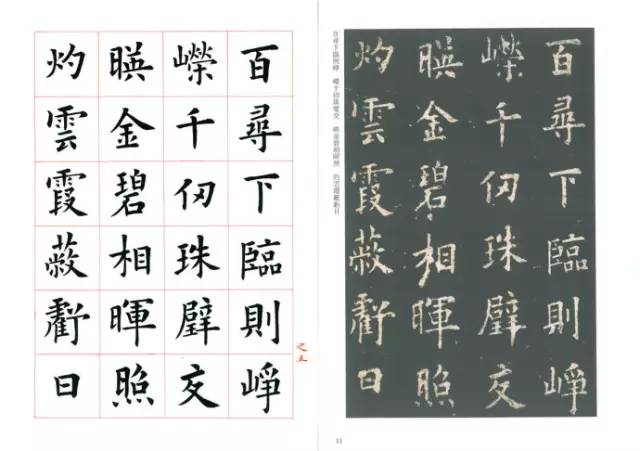 百尋下臨則崢
嶸千仞珠璧交
暎金碧相暉照
灼雲霞蔽虧日
百尋下臨則崢 嶸千仞珠璧交 映金碧相暉照 灼雲霞蔽虧日
11
之五
百尋下臨則崢
嶸千仞珠璧交
暎金碧相暉照
灼雲霞蔽虧日